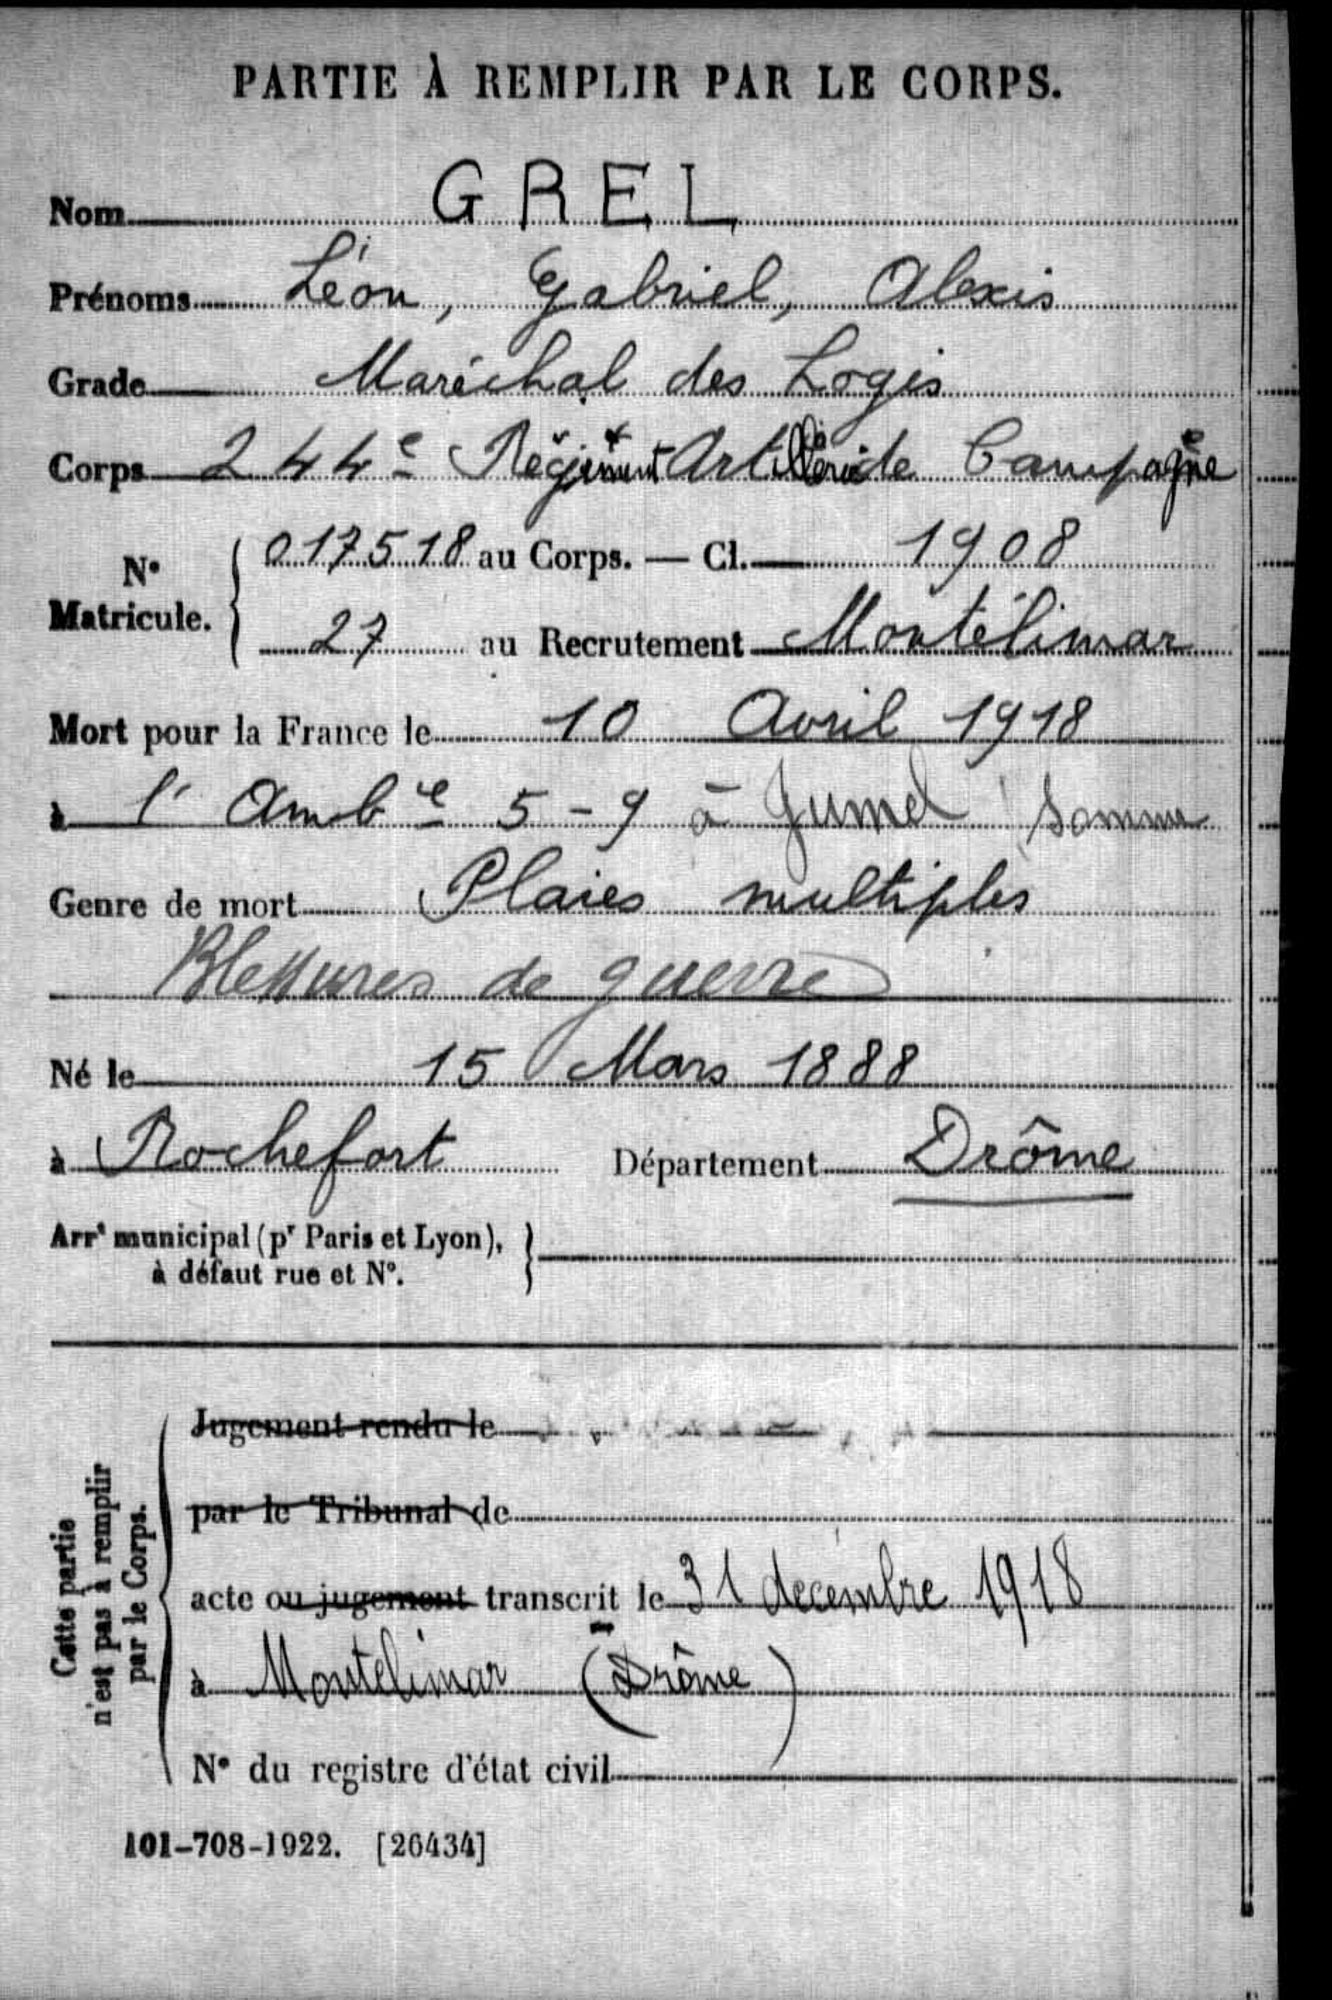 PARTIE À REMPLIR PAR LE CORPS.
Nom GREL
Prénoms Léon, Gabriel, Alexis
Grade Maréchal des Logis
Corps 244e Régiment Artillerie de Campagne
N° Matricule. 017518 au Corps. — Cl. 1908
27 au Recrutement Montélimar
Mort pour la France le 10 Avril 1918
à l'Ambce 5-9 à Jumel Somme
Genre de mort Plaies multiples
Blessures de guerre
Né le 15 Mars 1888
à Rochefort Département Drôme
Arrt municipal (pr Paris et Lyon),
à défaut rue et N°.
Cette partie
n'est pas à remplir
par le Corps.
Jugement rendu le
par le Tribunal de
acte ou jugement transcrit le 31 decembre 1918
à Montelimar (Drôme)
N° du registre d'état civil
101-708-1922. [26434]